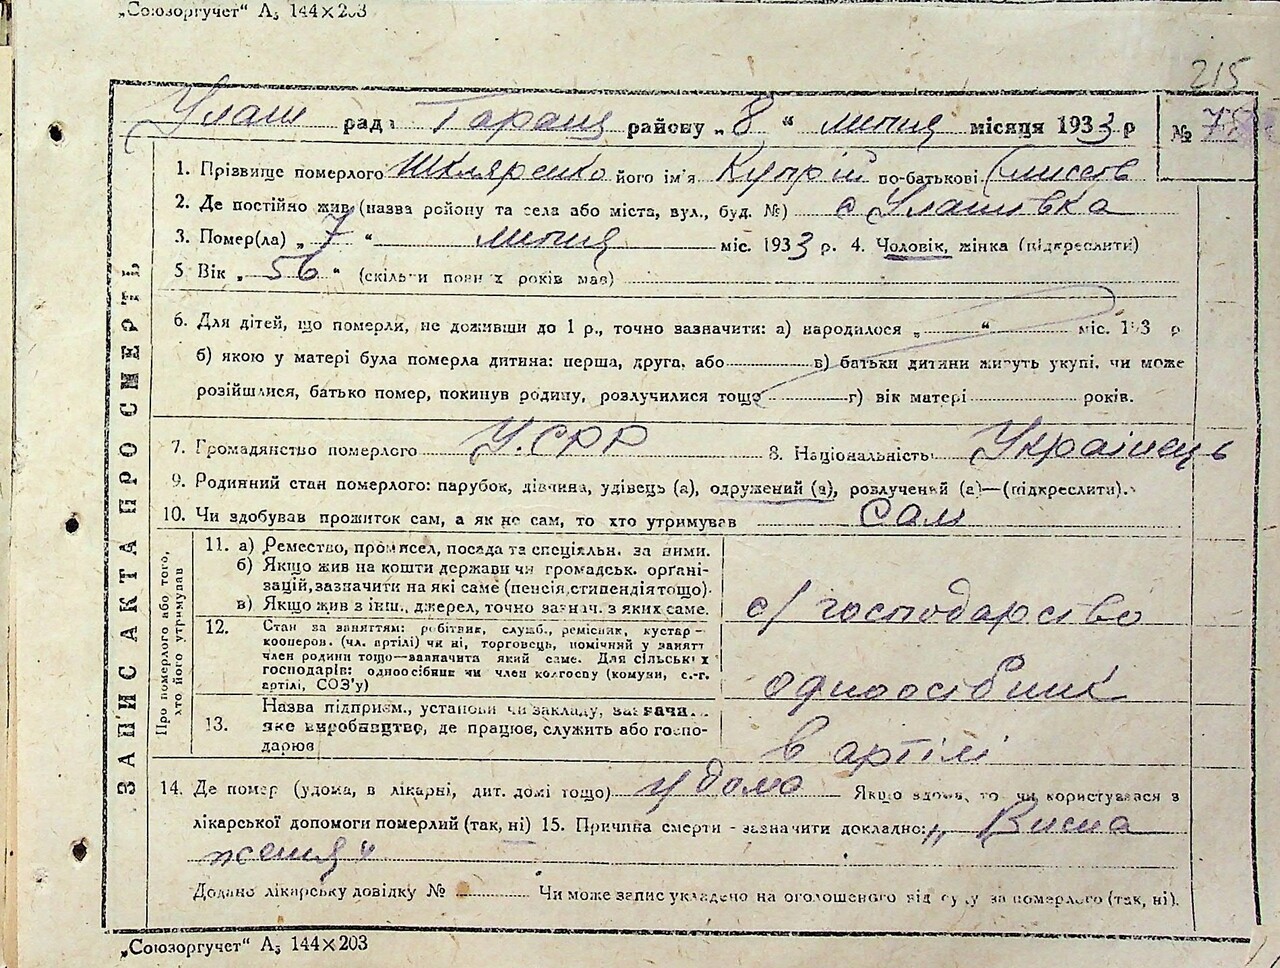 „Союзоргучет“ А₃ 144×203
215
Улаш рада Таращ району „8“ липня місяця 1933 р № 78
1. Прізвище померлого Шкляренко його ім'я Купрій по-батькові
2. Де постійно жив (назва району та села або міста, вул., буд. №) с Улашівка
3. Помер(ла) „7“ липня міс. 1933 р. 4. Чоловік, жінка (підкреслити)
5 Вік „56“ (скільки повних років мав)
6. Для дітей, що померли, не доживши до 1 р., точно зазначити: а) народилося „ “ міс. 193 р
б) якою у матері була померла дитина: перша, друга, або в) батьки дитини живуть укупі, чи може
розійшлися, батько помер, покинув родину, розлучилися тощо г) вік матері років.
7. Громадянство померлого У.СРР 8. Національність Українець
9. Родинний стан померлого: парубок, дівчина, удівець (а), одружений (а), розлучений (а)—(підкреслити).
10. Чи здобував прожиток сам, а як не сам, то хто утримував сам
ЗАПИС АКТА ПРО СМЕРТЬ
Про померлого або того,
хто його утримував
11. а) Ремество, промисел, посада та спеціальн. за ними.
б) Якщо жив на кошти держави чи громадськ. орґані-
зацій, зазначити на які саме (пенсія, стипендія тощо).
в) Якщо жив з інш. джерел, точно зазнач. з яких саме.
с/господарство
12. Стан за заняттям: робітник, служб., ремісник, кустар—
кооперов. (чл. артілі) чи ні, торговець, помічний у занятт
член родини тощо—зазначити який саме. Для сільськ х
господарів: одноосібник чи член колгоспу (комуни, с.-г.
артілі, СОЗ'у)
одноосібник
13. Назва підприєм., установи чи закладу, зазначи...
яке виробництво, де працює, служить або госпо-
дарює
в артілі
14. Де помер (удома, в лікарні, дит. домі тощо) удома Якщо вдома, то чи користувався з
лікарської допомоги померлий (так, ні) 15. Причина смерти - зазначити докладно: „Висна
ження“
Додано лікарську довідку № Чи може запис укладено на оголошеного від суду за померлого (так, ні).
„Союзоргучет“ А₃ 144×203